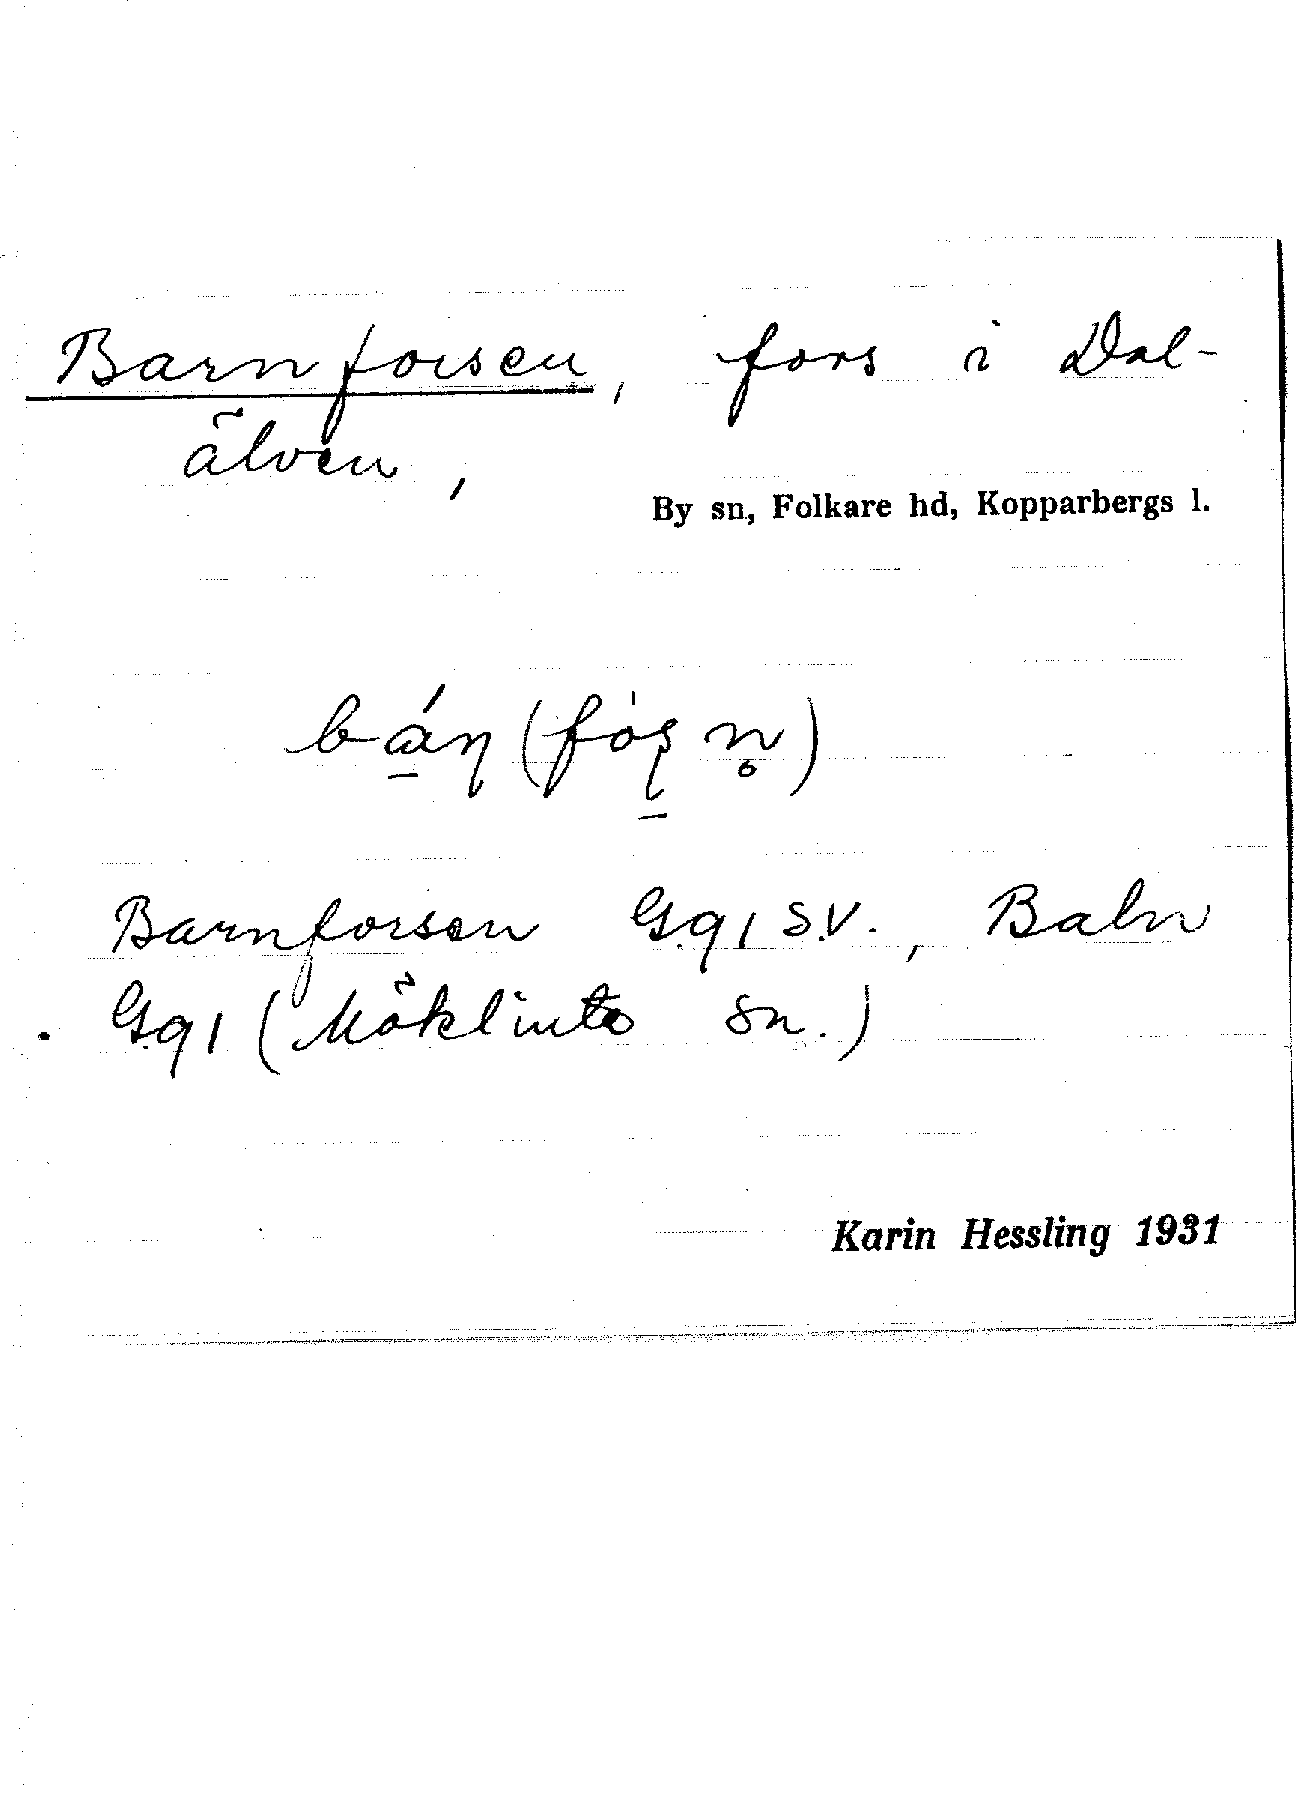 Barnforsen, fors i Dal-
älven,
By sn, Folkare hd, Kopparbergs l.
bá̱ꞃ (fo̍ʂ̱ n̥)
Barnforsen G.q 1 S.V., Baln
G.q 1 (Möklinto sn.)
Karin Hessling 1931